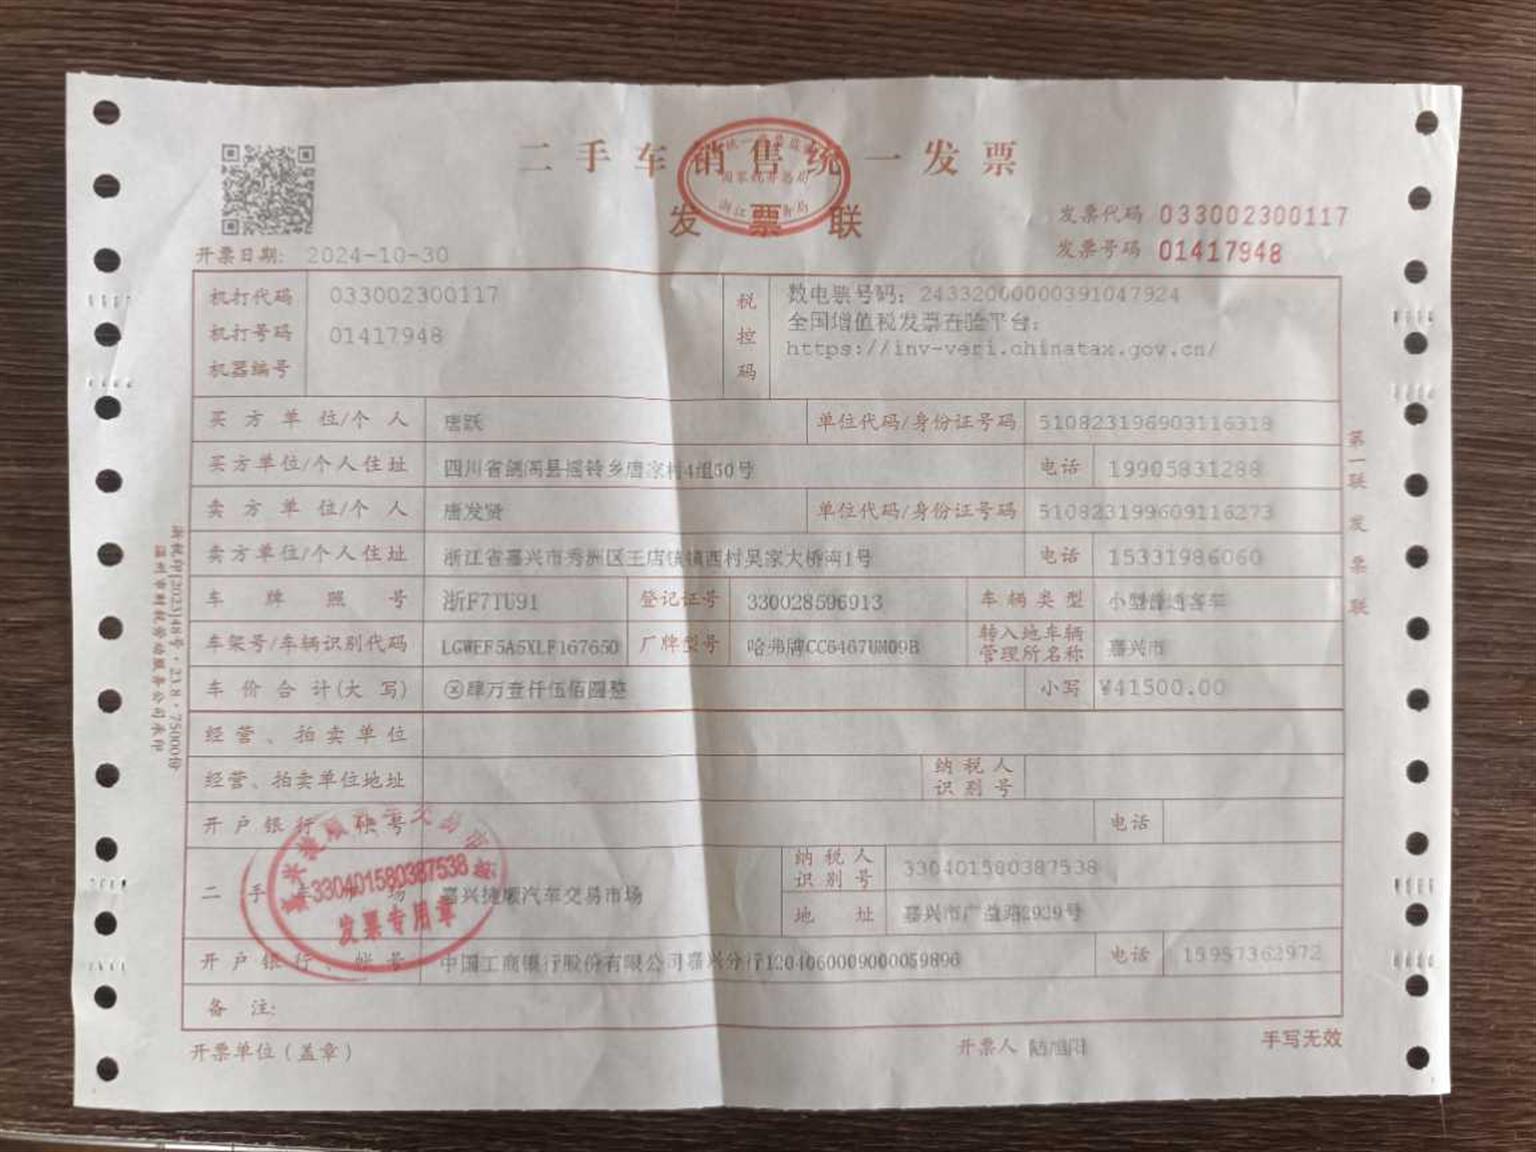 二手车销售统一发票
发票联
发票代码 033002300117
发票号码 01417948
开票日期: 2024-10-30
机打代码 033002300117
机打号码 01417948
机器编号
税控码
数电票号码: 24332000000391047924
全国增值税发票查验平台:
https://inv-veri.chinatax.gov.cn/
买方单位/个人 唐跃 单位代码/身份证号码 510823196903116318
买方单位/个人住址 四川省剑阁县摇铃乡唐家村4组50号 电话 19905831288
卖方单位/个人 唐发贤 单位代码/身份证号码 510823199609116273
卖方单位/个人住址 浙江省嘉兴市秀洲区王店镇镇西村吴家大桥湾1号 电话 15331986060
车牌照号 浙F7TU91 登记证号 330028596913 车辆类型 小型普通客车
车架号/车辆识别代码 LGWEF5A5XLF167650 厂牌型号 哈弗牌CC6467UM09B 转入地车辆管理所名称 嘉兴市
车价合计(大写) ⊗肆万壹仟伍佰圆整 小写 ¥41500.00
经营、拍卖单位
经营、拍卖单位地址 纳税人识别号
开户银行、帐号 电话
二手车市场 嘉兴捷顺汽车交易市场 纳税人识别号 330401580387538
地址 嘉兴市广益路2929号
开户银行、帐号 中国工商银行股份有限公司嘉兴分行1204060009000059896 电话 15957362972
备注:
开票单位(盖章) 开票人 陆旭阳 手写无效
第一联 发票联
330401580387538
发票专用章